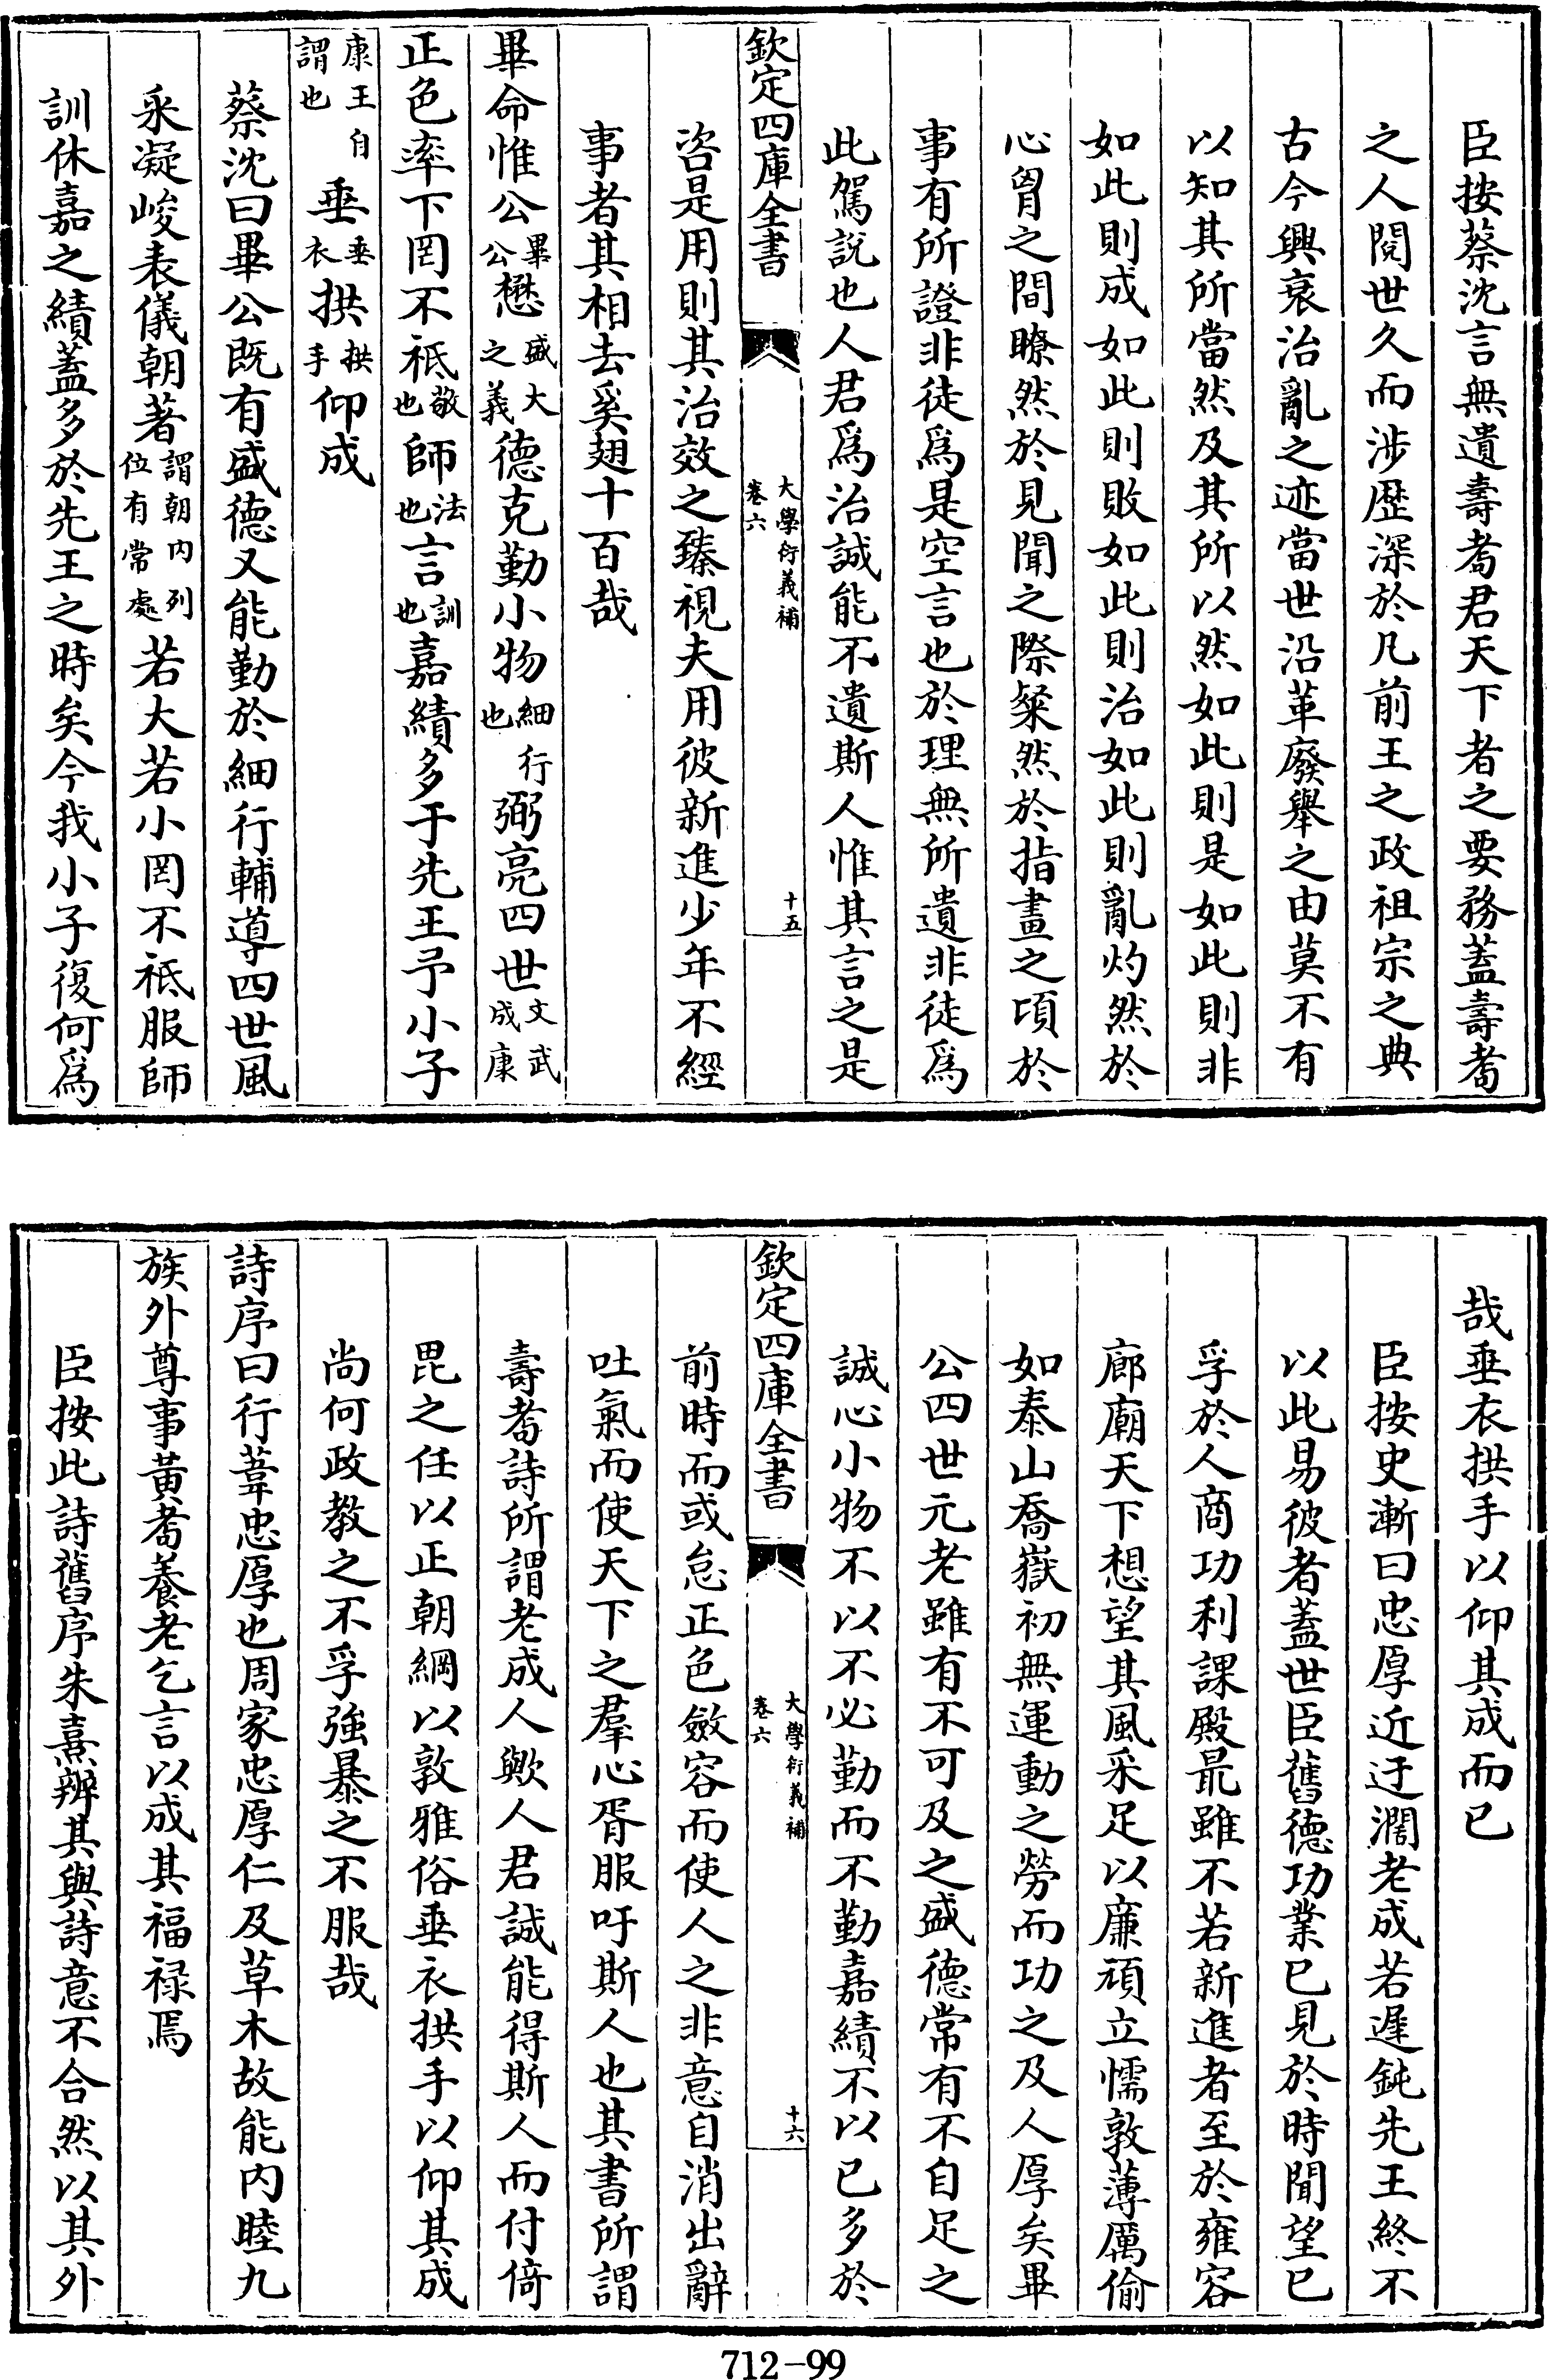 臣按蔡沈言無遺壽耉君天下者之要務蓋壽耉
之人閱世久而涉歴深於凡前王之政祖宗之典
古今興衰治亂之迹當世沿革廢舉之由莫不有
以知其所當然及其所以然如此則是如此則非
如此則成如此則敗如此則治如此則亂灼然於
心胷之間瞭然於見聞之際粲然於指畫之頃於
事有所證非徒爲是空言也於理無所遺非徒爲
此駕說也人君爲治誠能不遺斯人惟其言之是
欽定四庫全書
大學衍義補
卷六
十五
咨是用則其治效之臻視夫用彼新進少年不經
事者其相去奚翅十百哉
畢命惟公畢公懋盛大之義德克勤小物細行也弼亮四世文武成康
正色率下罔不祗敬也師法也言訓也嘉績多于先王予小子
康王自謂也垂垂衣拱拱手仰成
蔡沈曰畢公既有盛德又能勤於細行輔導四世風
采凝峻表儀朝著謂朝内列位有常處若大若小罔不祗服師
訓休嘉之績蓋多於先王之時矣今我小子復何爲
哉垂衣拱手以仰其成而已
臣按史漸曰忠厚近迂濶老成若遲鈍先王終不
以此易彼者蓋世臣舊德功業已見於時聞望已
孚於人商功利課殿最雖不若新進者至於雍容
廊廟天下想望其風采足以廉頑立懦敦薄厲偷
如泰山喬嶽初無運動之勞而功之及人厚矣畢
公四世元老雖有不可及之盛德常有不自足之
誠心小物不以不必勤而不勤嘉績不以已多於
欽定四庫全書
大學衍義補
卷六
十六
前時而或怠正色斂容而使人之非意自消出辭
吐氣而使天下之羣心胥服吁斯人也其書所謂
壽耉詩所謂老成人歟人君誠能得斯人而付倚
毘之任以正朝綱以敦雅俗垂衣拱手以仰其成
尚何政教之不孚強暴之不服哉
詩序曰行葦忠厚也周家忠厚仁及草木故能内睦九
族外尊事黃耉養老乞言以成其福禄焉
臣按此詩舊序朱熹辨其與詩意不合然以其外
712-99